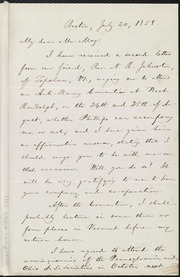 Boston, July 20, 1858.
My dear Mr. May:
I have received a second letter
from our friend, Rev. N. R. Johnston,
of Topsham, Vt., urging me to attend
an Anti-Slavery Convention at West
Randolph, on the 24th and 25th of Aug-
ust, whether Phillips can accompany
me or not; and I have given him
an affirmative answer, stating that I
should urge you to be with me on
that occasion. Will you do so? It will
be very gratifying to me to have
your company and co-operation.
After the Convention, I shall
probably lecture in some three or
four places in Vermont before my
return home.
I have agreed to attend the
anniversaries of the Pennsylvania and
Ohio A. S. Societies in October next